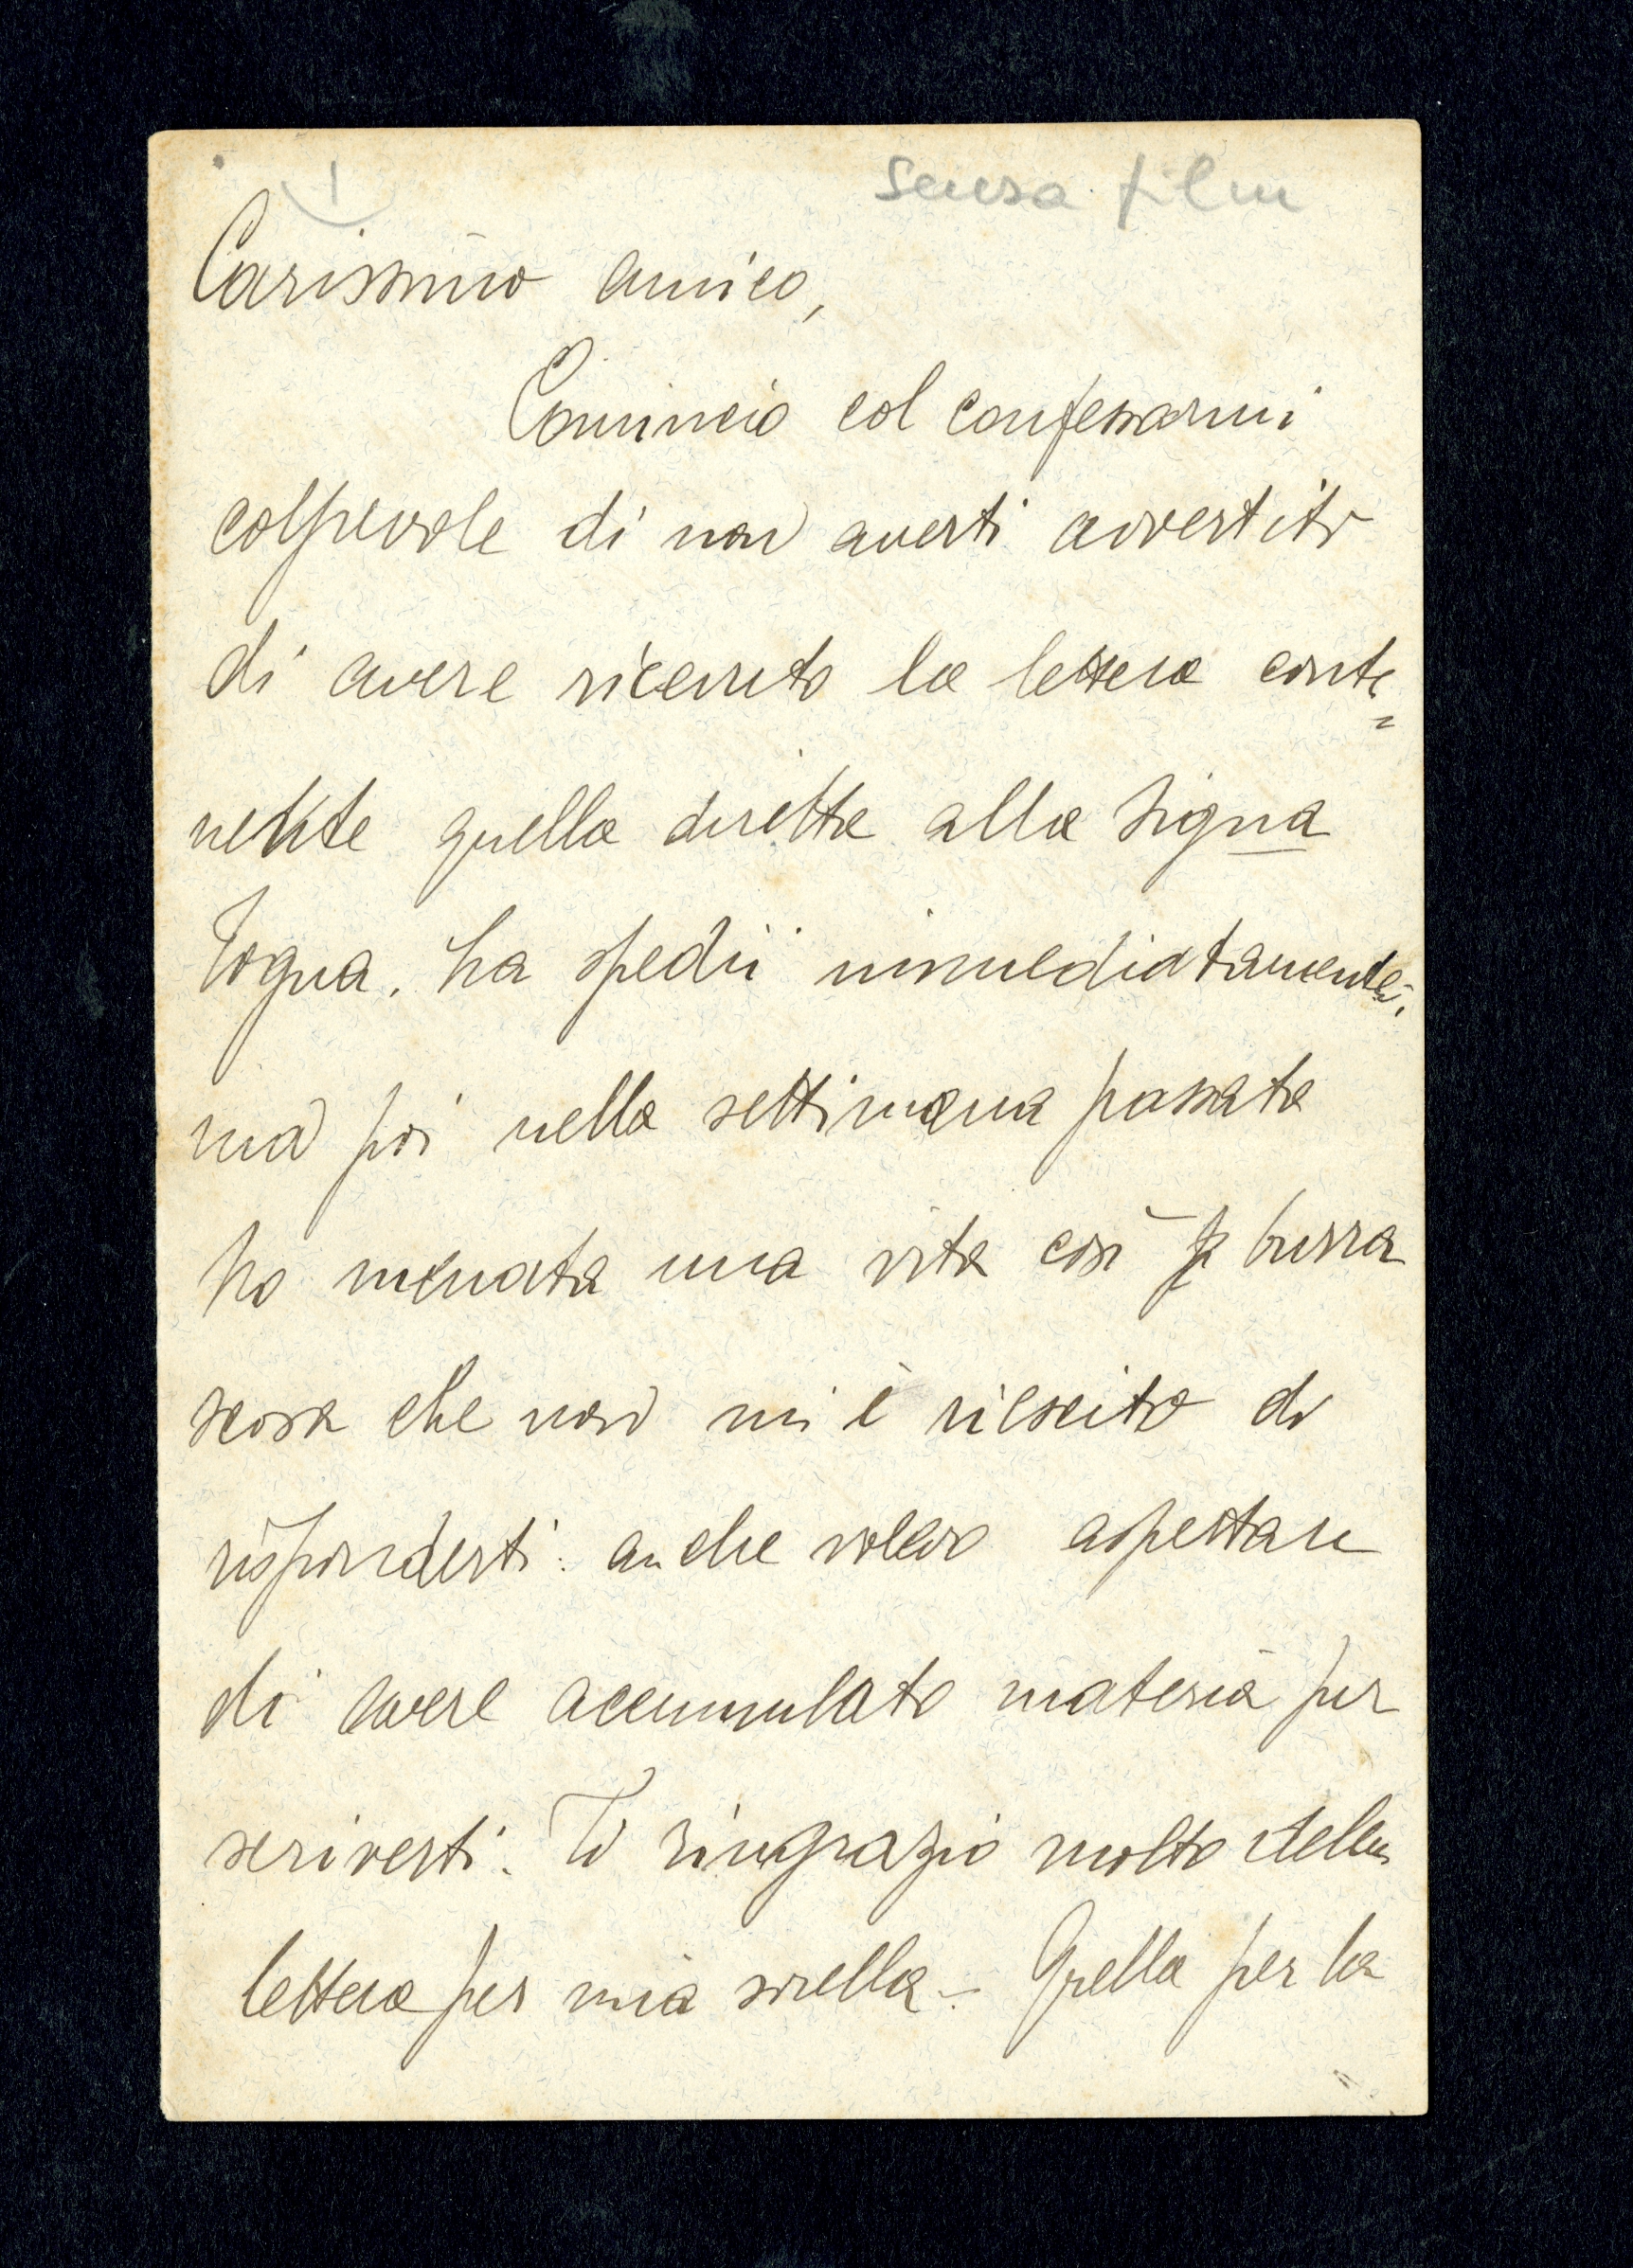 senza film
Carissimo amico,
Comincio col confessarmi
colpevole di non averti avvertito
di avere ricevuto la lettera conte=
nente quella diretta alla Signa
Togna. La spedii immediatamente;
ma poi nella settimana passata
ho menata una vita così burra
scosa che non mi è riescito di
risponderti: anche volevo aspettare
di avere accumulato materia per
scriverti. Ti ringrazio molto della
lettera per mia sorella – Quella per la